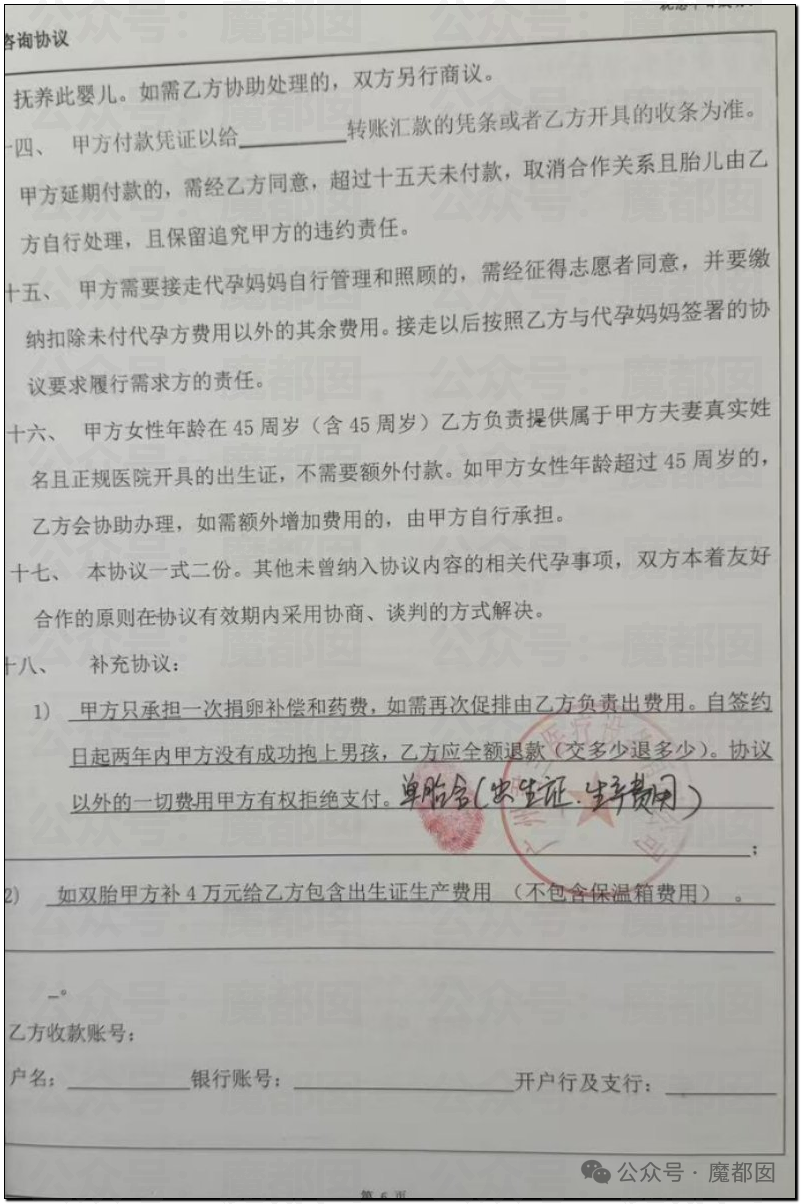 咨询协议
抚养此婴儿。如需乙方协助处理的，双方另行商议。
十四、 甲方付款凭证以给________转账汇款的凭条或者乙方开具的收条为准。
甲方延期付款的，需经乙方同意，超过十五天未付款，取消合作关系且胎儿由乙
方自行处理，且保留追究甲方的违约责任。
十五、 甲方需要接走代孕妈妈自行管理和照顾的，需经征得志愿者同意，并要缴
纳扣除未付代孕方费用以外的其余费用。接走以后按照乙方与代孕妈妈签署的协
议要求履行需求方的责任。
十六、 甲方女性年龄在 45 周岁（含 45 周岁）乙方负责提供属于甲方夫妻真实姓
名且正规医院开具的出生证，不需要额外付款。如甲方女性年龄超过 45 周岁的，
乙方会协助办理，如需额外增加费用的，由甲方自行承担。
十七、 本协议一式二份。其他未曾纳入协议内容的相关代孕事项，双方本着友好
合作的原则在协议有效期内采用协商、谈判的方式解决。
十八、 补充协议：
1) 甲方只承担一次捐卵补偿和药费，如需再次促排由乙方负责出费用。自签约
日起两年内甲方没有成功抱上男孩，乙方应全额退款（交多少退多少）。协议
以外的一切费用甲方有权拒绝支付。单胎含（出生证．生产费用）
；
2) 如双胎甲方补 4 万元给乙方包含出生证生产费用 （不包含保温箱费用） 。
。
乙方收款账号：
户名：________银行账号：________开户行及支行：________
第 6 页
公众号·魔都囡